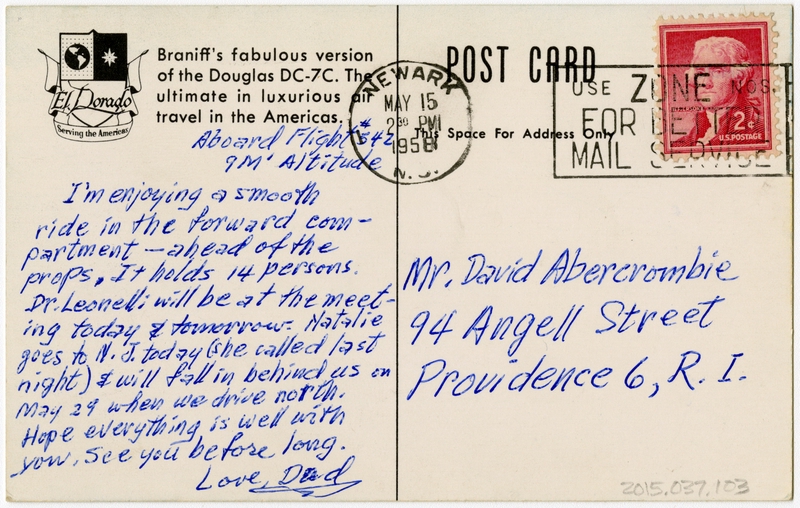 Braniff's fabulous version
of the Douglas DC-7C. The
ultimate in luxurious air
travel in the Americas.
El Dorado
Serving the Americas
POST CARD
This Space For Address Only
NEWARK
MAY 15
2 30 PM
1958
N.J.
USE ZONE NOS.
FOR BETTER
MAIL SERVICE
2¢
U.S. POSTAGE
Aboard Flight #542
9M' Altitude
I'm enjoying a smooth
ride in the forward com-
partment — ahead of the
props. It holds 14 persons.
Dr. Leonelli will be at the meet-
ing today & tomorrow. Natalie
goes to N.J. today (she called last
night) & will fall in behind us on
May 29 when we drive north.
Hope everything is well with
you. See you before long.
Love, Dad
Mr. David Abercrombie
94 Angell Street
Providence 6, R. I.
2015.037.103